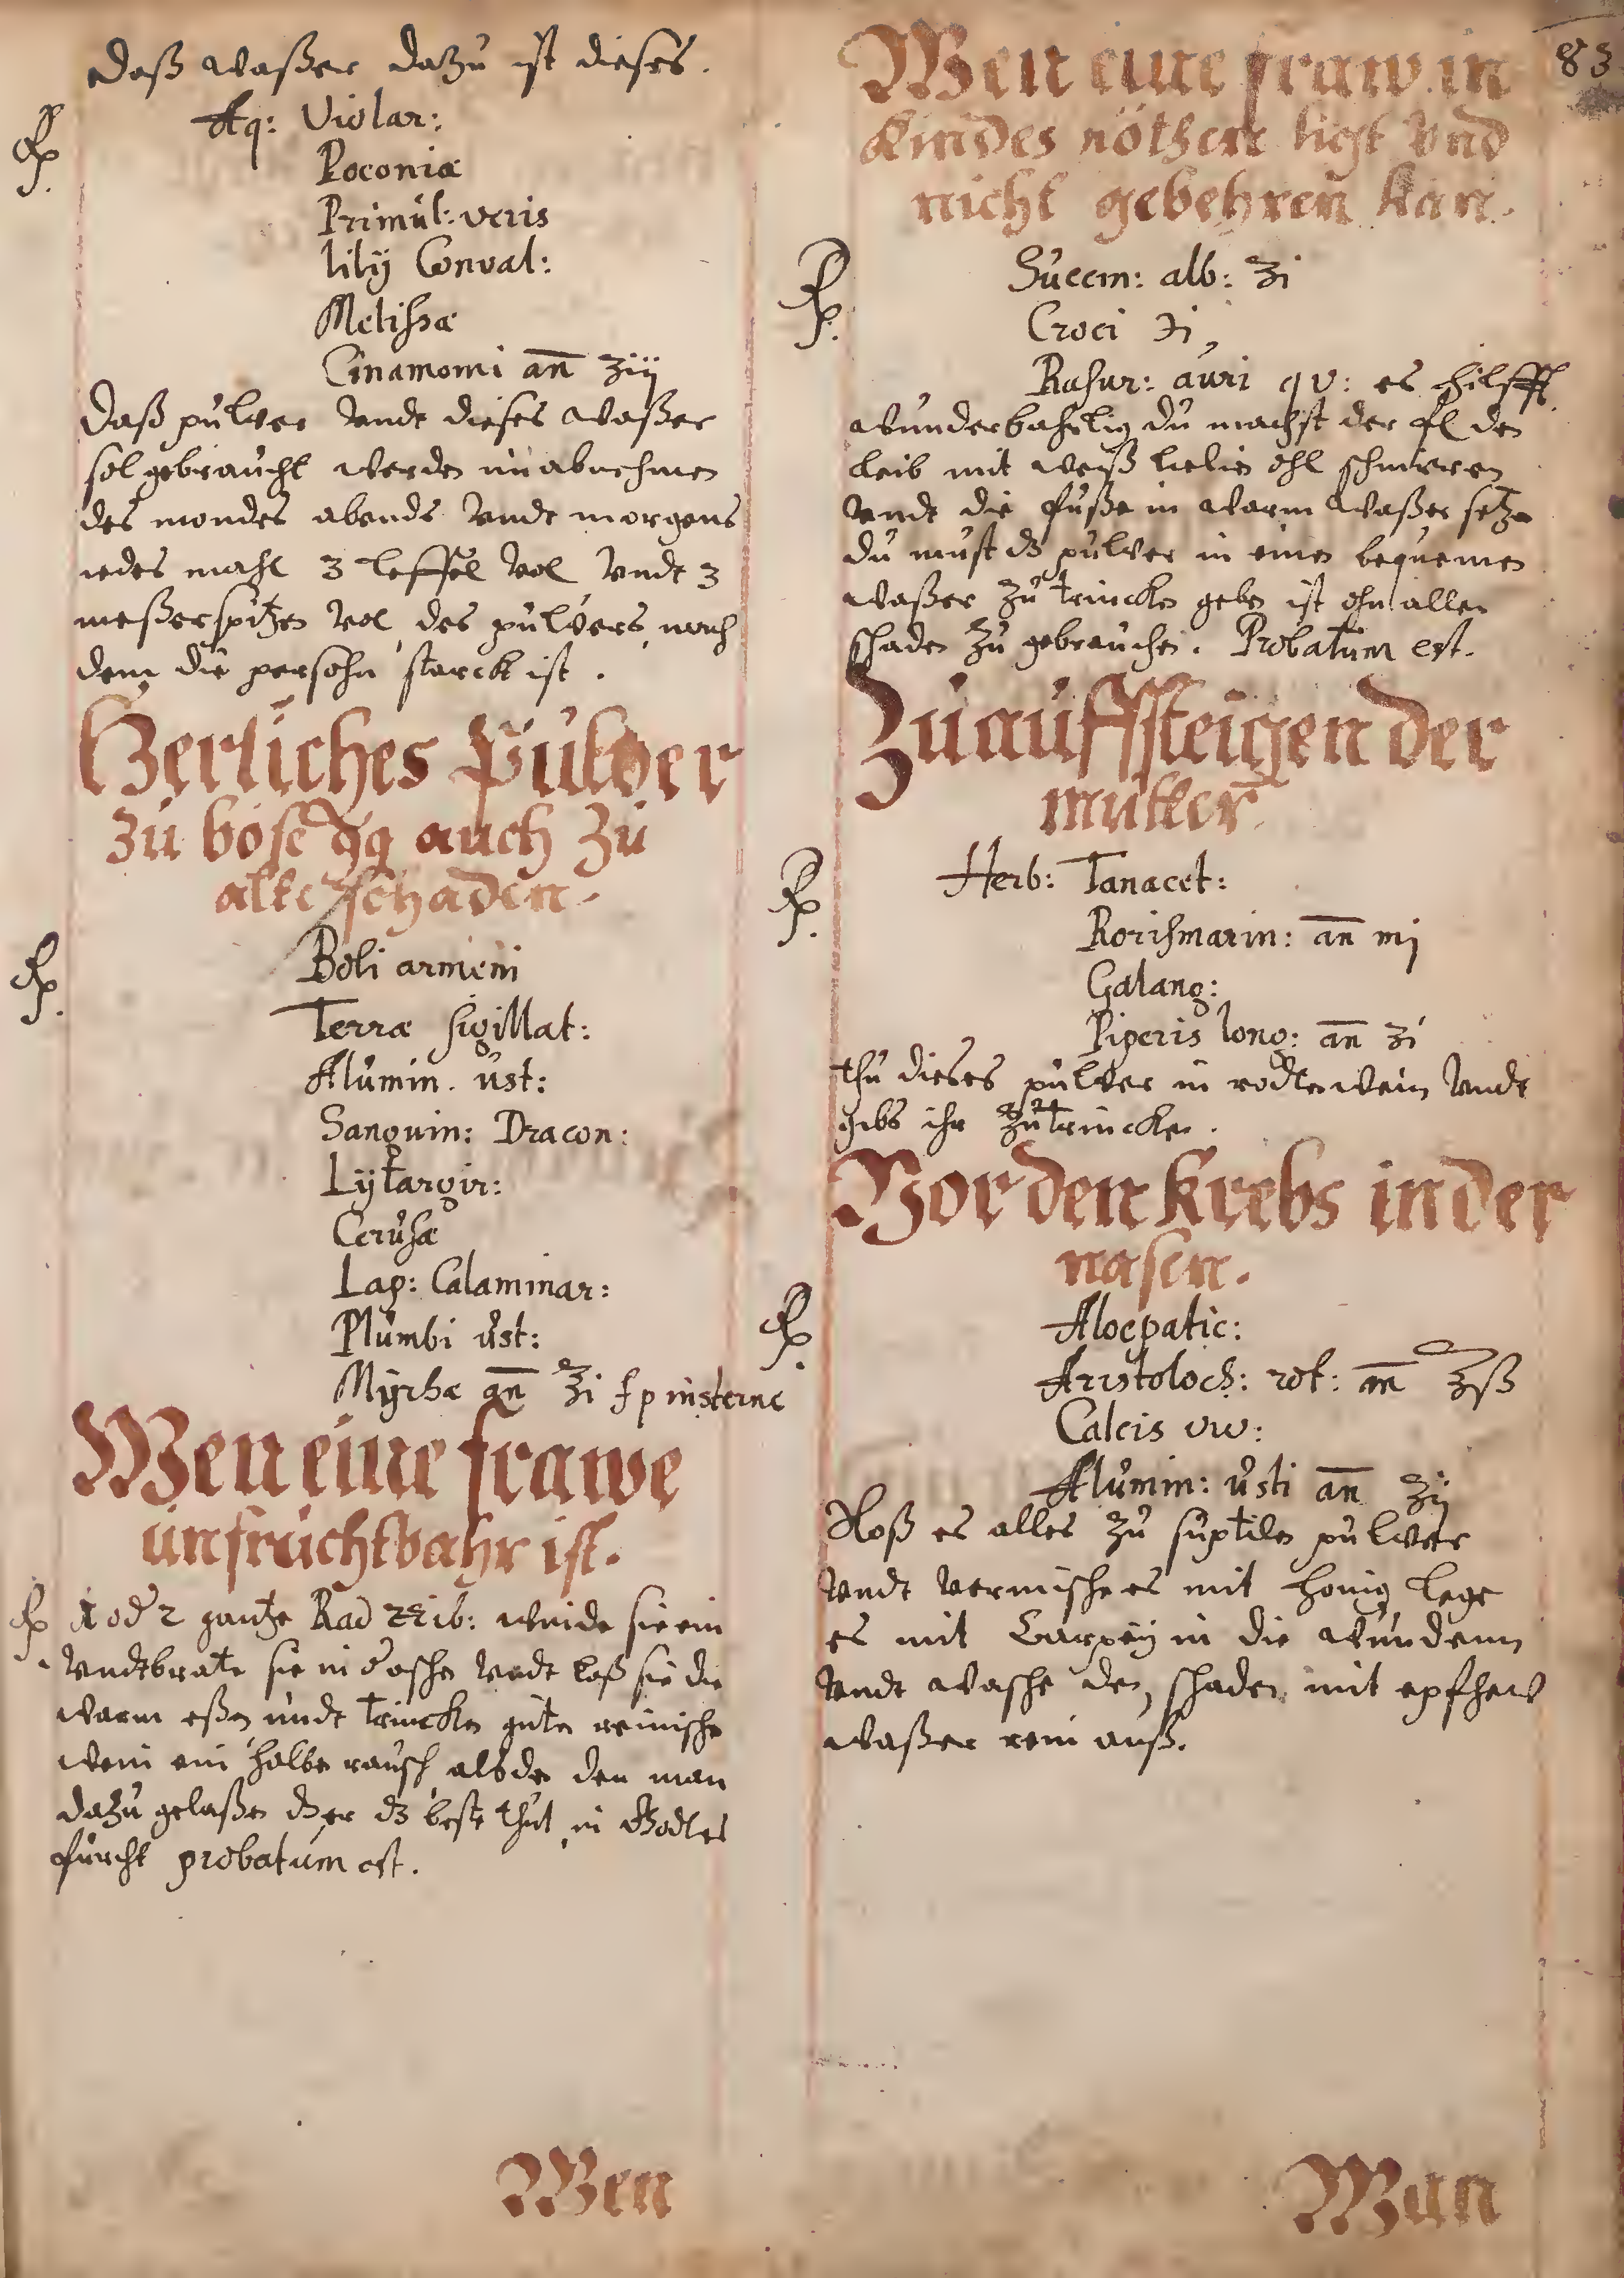 daß waßer dazu ist dieses.
℞ Aq: Violar:
Poeoniæ
Primul: veris
lilij Conval:
Melissæ
Cinamomi an̄ ʒiij
Daß pulver vndt dieses waßer
sol gebraucht werden im abnehmen
des mondes abends vndt morgens
iedes mahl 3 leffel vol vndt 3
meßerspitzen vol des pulvers, nach
dem die persohn starck ist.
Herliches Pulver
zu böse auch zu
alte schaden.
℞ Boli armeni
Terræ sigillat:
Alumin. ust:
Sanguin: Dracon:
Lytargir:
Cerusæ
Lap: Calaminar:
Plumbi ust:
Myrhæ an̄ ʒi
Wen eine frawe
unfruchtbahr ist.
℞ 1 od 2 gantze weide sie ein
vndt brate sie in asche vndt laß sie die
warm eßen undt trincken guten reinische
wein ein halbe rausch alsden den man
dazu gelaßen dz er dz beste thut, in Godtes
furcht probatum est.
Wen
83
Wen eine fraw in
Kindes nöthen ligt vnd
nicht gebehren kan.
℞ Succin: alb: ʒi
Croci ℈i,
Rasur: auri qv: es hilfft
wunderbahrlig du machst der den
leib mit weiß lielien öhl schmieren
vndt die fuße in warm waßer setzen
du must dz pulver in einen bequemen
waßer zu trincken geben ist ohn allen
schaden zu gebrauchen. Probatum est.
Zu auffsteigen der
mutter.
℞ Herb: Tanacet:
Rorismarin: an̄ mj
Galang:
Piperis long: an̄ ʒi
thu dieses pulver in rodten wein vndt
gibs ihr zu trincken.
Vor den Krebs in der
nasen.
℞ Aloepatic:
Aristoloch: rot: an̄ ʒß
Calcis viv:
Alumin: usti an̄ ʒij
Stoß es alles zu suptilen pulver
vndt vermische es mit honig lege
es mit Carpey in die wundenn
vndt wasche den schaden mit epfhew
waßer rein auß.
Man